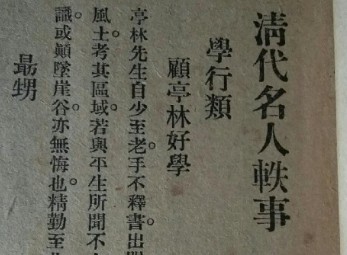 清代名人軼事
學行類
顧亭林好學
亭林先生自少至老。手不釋書。出
風土。考其區域。若與平生所聞不
識。或顚墜崖谷。亦無悔也。精勤至
最甥